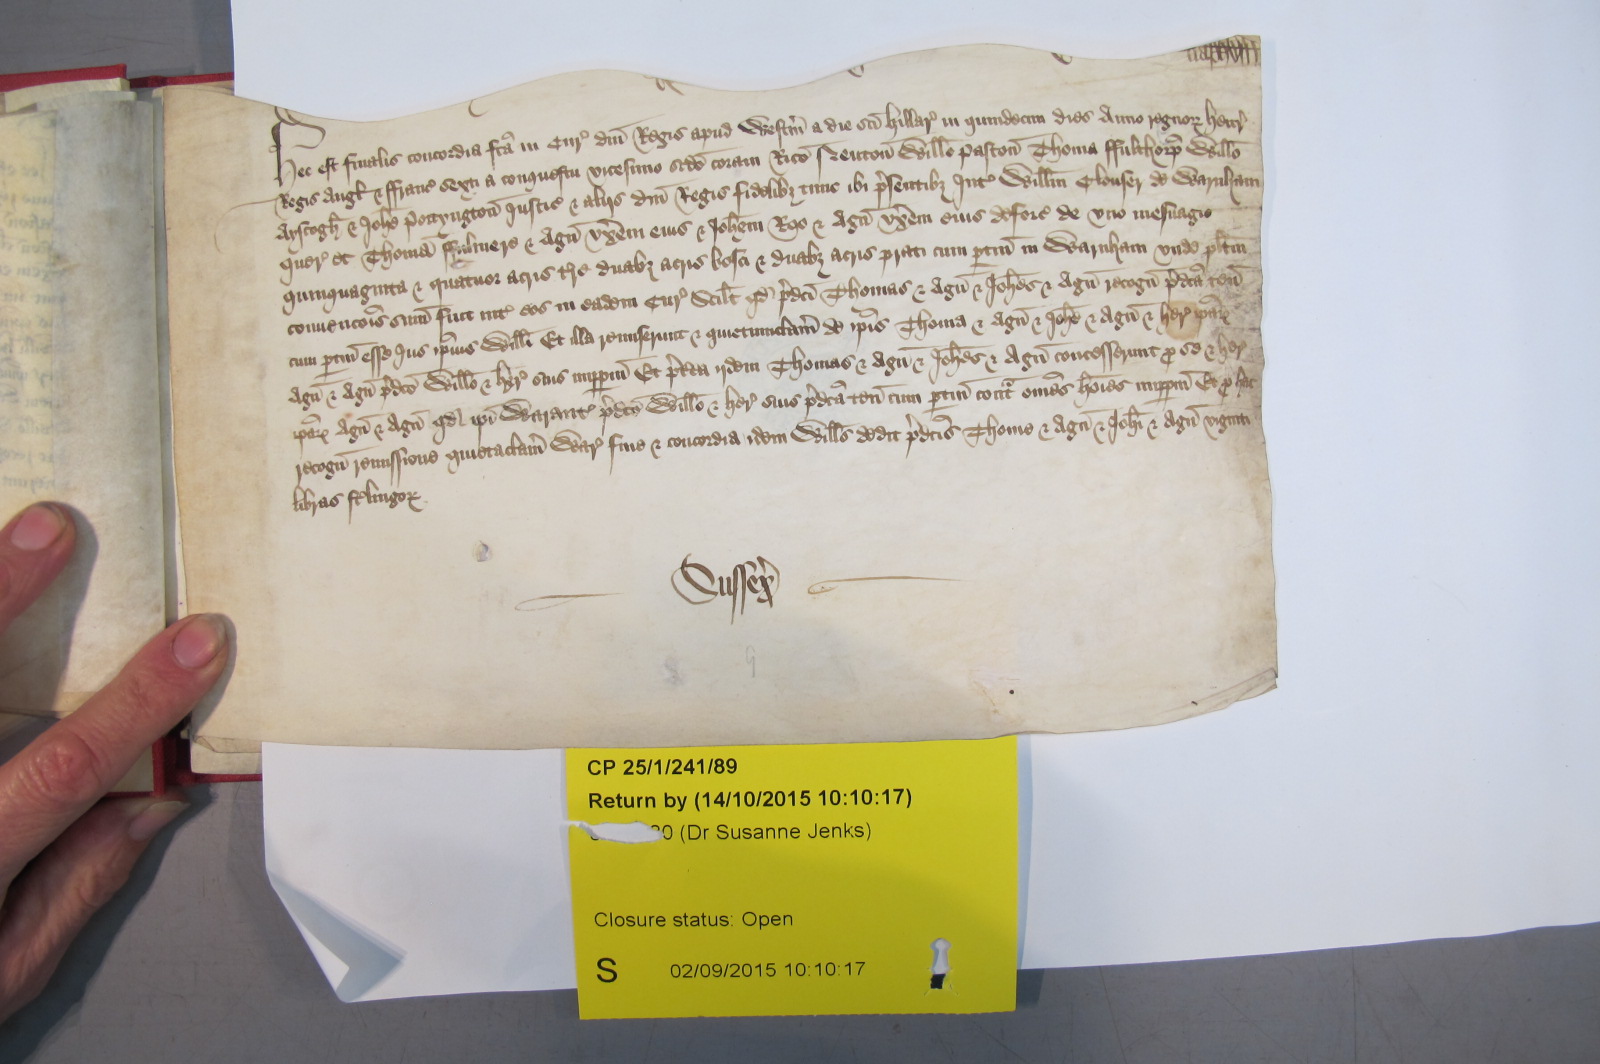 Hec est finalis concordia fca in Cur dni Regis apud Westm a die sci Hillar in quindecim dies Anno regnor Henr
Regis Angl & ffranc sexti a conquestu vicesimo scdo coram Rico Neuton Willo Paston Thoma ffulthorp Willo
Ayscogh & Johe Portyngton Justic & aliis dni Regis fidelibz tunc ibi psentibz Int Willm Clouser de Warnham
quer et Thomam & Agn vxem eius & Johem Ros & Agn vxem eius deforc de vno mesuagio
quinquaginta & quatuor acris tre duabz acris bosci & duabz acris prati cum ptin in Warnham vnde plitm
convencois sum fuit int eos in eadem Cur Scilt qd pdci Thomas & Agn & Johes & Agn recogn pdca ten
cum ptin esse Jus ipius Willi Et illa remiserunt & quietumclam de ipis Thoma & Agn & Johe & Agn & her ipar
Agn & Agn pdco Willo & her suis imppm Et pterea iidem Thomas & Agn & Johes & Agn concesserunt p se & her
ipar Agn & Agn qd ipi Warant pdco Willo & her suis pdca ten cum ptin cont omes hoies imppm Et p hac
recogn remissione quietaclam War fine & concordia idem Wills dedit pdcis Thome & Agn & Johi & Agn viginti
libras stlingor
Sussex
9
CP 25/1/241/89
Return by (14/10/2015 10:10:17)
(Dr Susanne Jenks)
Closure status: Open
S 02/09/2015 10:10:17